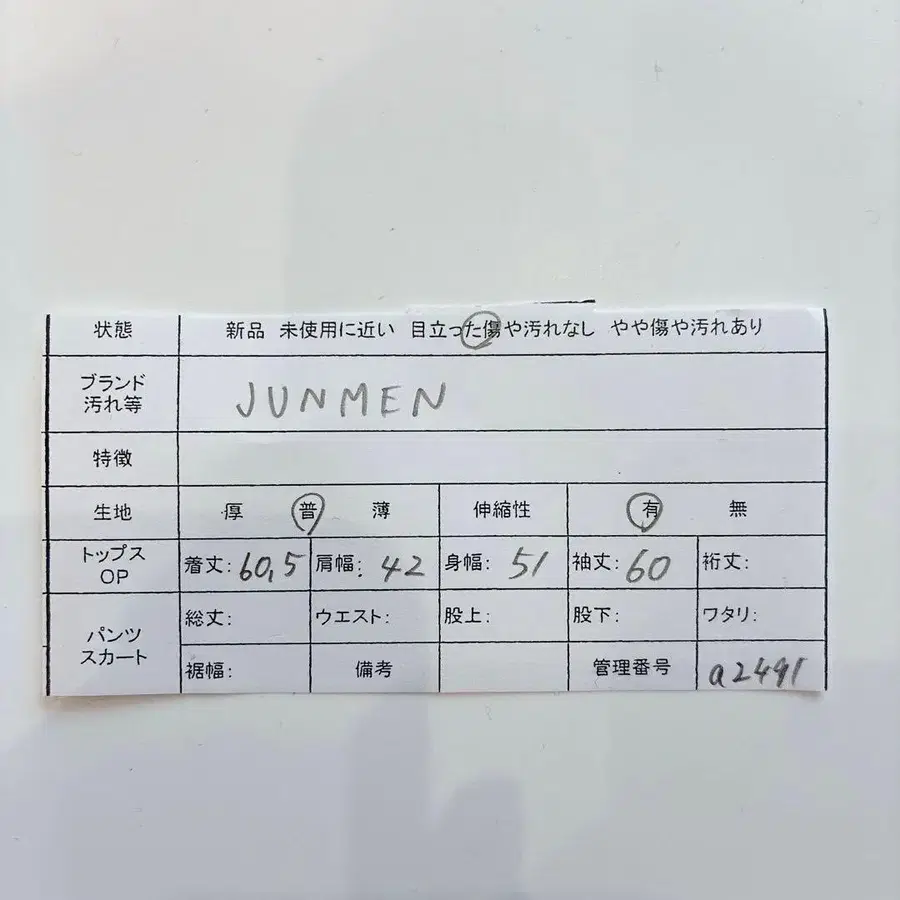 状態 新品 未使用に近い 目立った傷や汚れなし やや傷や汚れあり
ブランド
汚れ等 JUNMEN
特徴
生地 厚 普 薄 伸縮性 有 無
トップス
OP 着丈: 60,5 肩幅: 42 身幅: 51 袖丈: 60 裄丈:
パンツ
スカート 総丈: ウエスト: 股上: 股下: ワタリ:
裾幅: 備考 管理番号 a2491